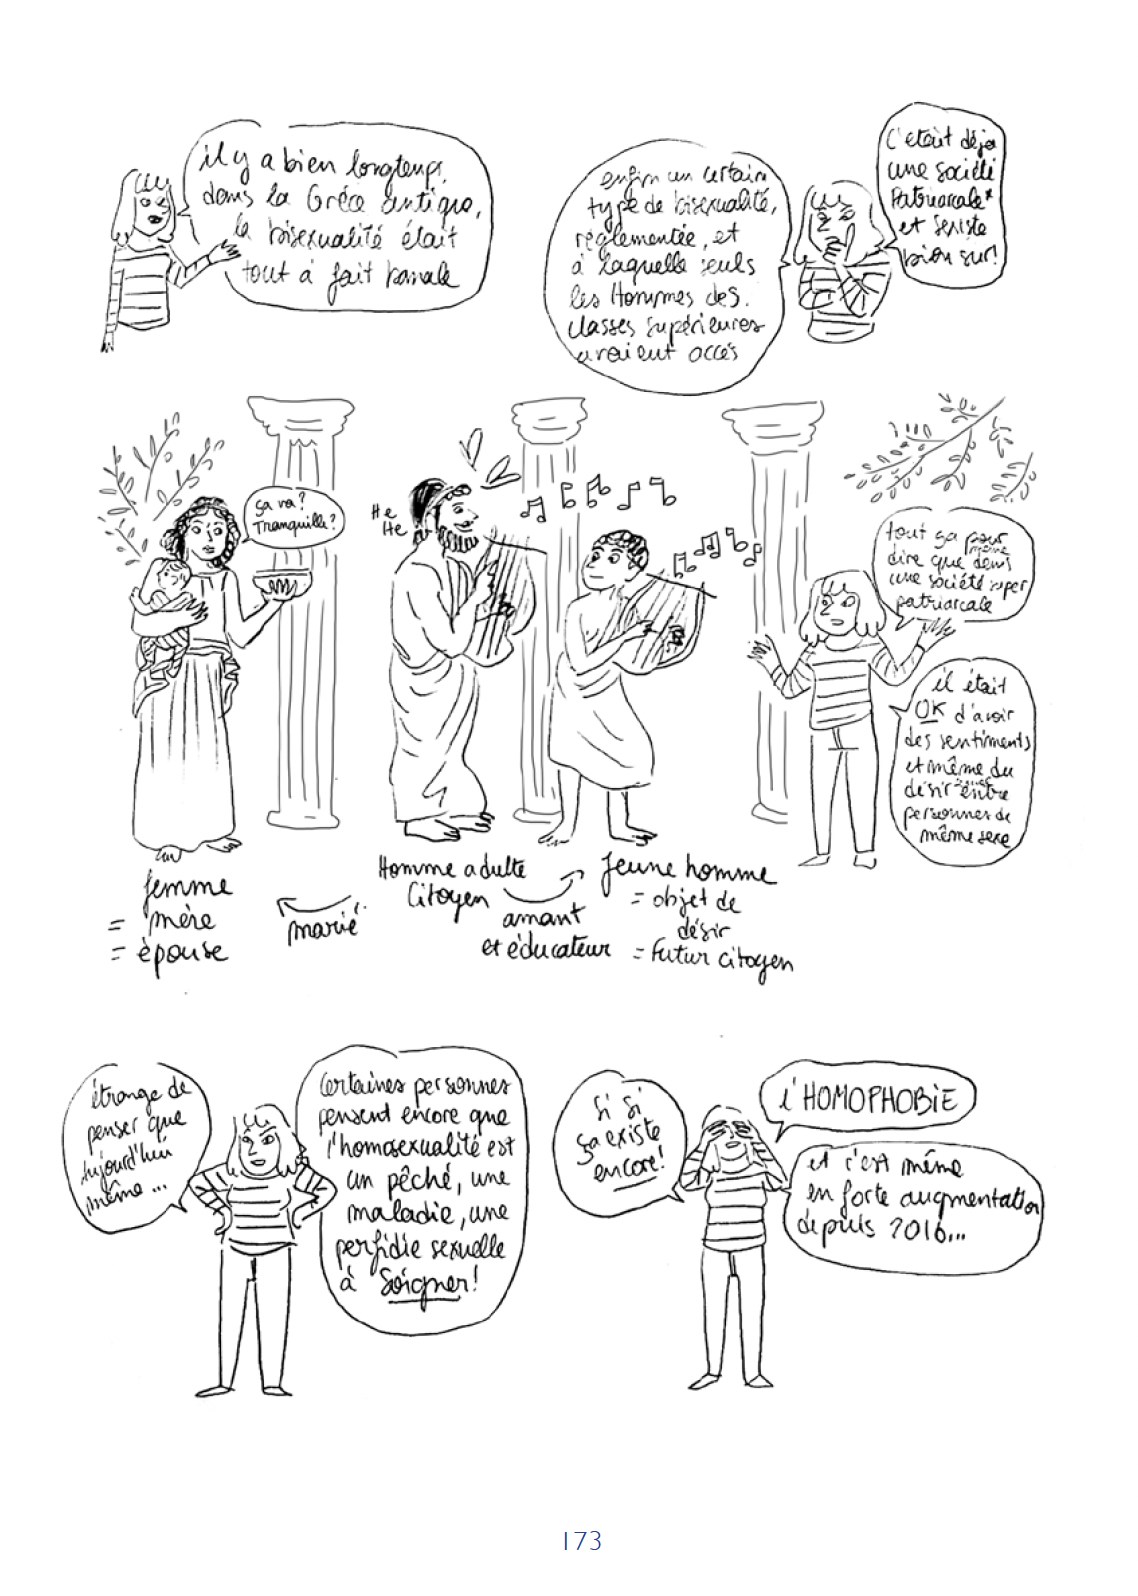 il y a bien longtemps,
dans la Grèce antique,
la bisexualité était
tout à fait banale
enfin un certain
type de bisexualité,
règlementée, et
à laquelle seuls
les Hommes des
classes supérieures
avaient accès
C'était déjà
une société
Patriarcale*
et sexiste
bien sur!
ça va?
Tranquille?
He
He
tout ça pour
dire que même dans
une société super
patriarcale
il était
OK d'avoir
des sentiments
et même du
désir entre
personnes de
même sexe
femme
= mère
= épouse
marié
Homme adulte
Citoyen
amant
et éducateur
Jeune homme
= objet de
désir
= Futur citoyen
étrange de
penser que
aujourd'hui
même ...
Certaines personnes
pensent encore que
l'homosexualité est
un pêché, une
maladie, une
perfidie sexuelle
à Soigner!
Si Si
ça existe
encore!
l'HOMOPHOBIE
et c'est même
en forte augmentation
depuis 2016...
173